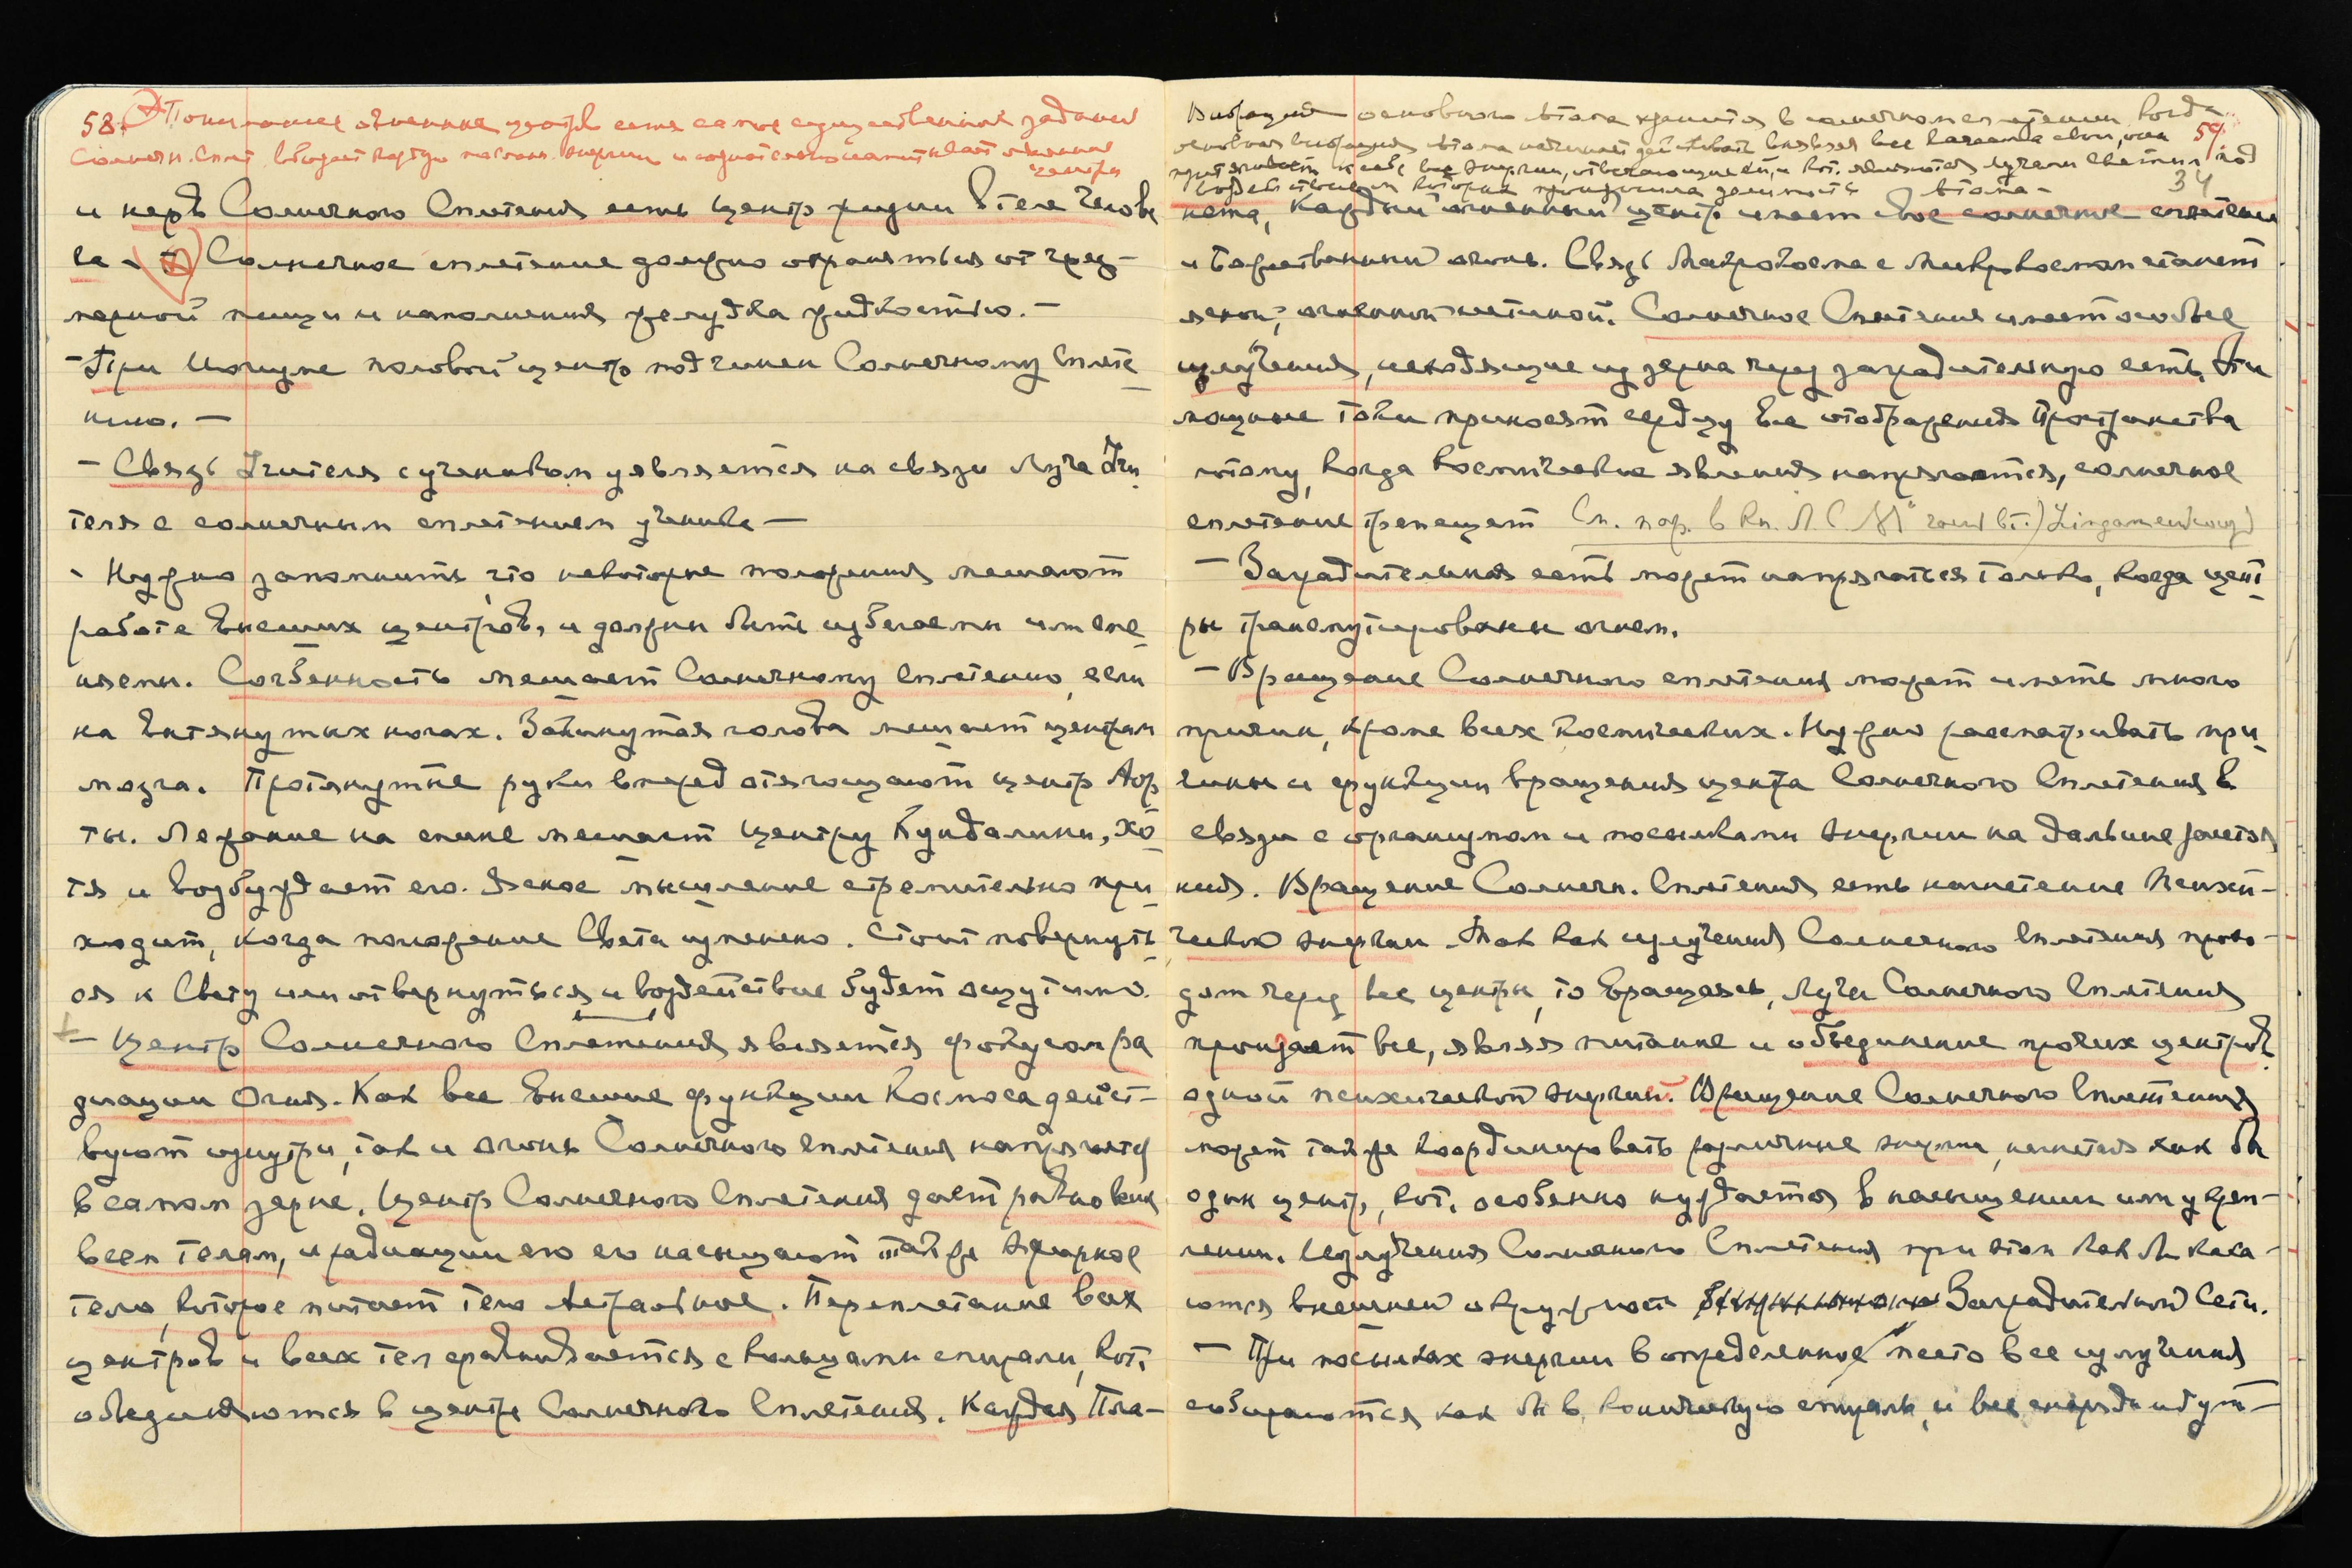 58. Понимание огненных центров есть самое существенное задание
Солнечн. Сплет. энергии и сознательно напитывает огненные
центры
и нерв Солнечного Сплетения есть центр жизни в теле челове
ка - Солнечное сплетение должно охраняться от чрез-
мерной пищи и наполнения желудка жидкостью. -
- При Иогизме половой центр подчинен Солнечному Сплете
нию. -
- Связь Учителя с учеником уявляется на связи Луча Учи
теля с солнечным сплетением ученика -
- Нужно запомнить, что некоторые положения мешают
работе внешних центров, и должны быть избегаемы или сме
няемы. Согбенность мешает Солнечному Сплетению, если
на вытянутых ногах. Закинутая голова мешает центрам
мозга. Протянутые руки вперед отягощают центр Аор
ты. Лежание на спине мешает центру Кундалини, хо
тя и возбуждает его. Ясное мышление стремительно при
ходит, когда положение Света изменено. Стоит повернуть
ся к Свету или отвернуться, и воздействие будет ощутимо.
- Центр Солнечного Сплетения является фокусом ра
диации Огня. Как все внешние функции Космоса дейст-
вуют изнутри, так и огонь Солнечного сплетения напрягается
в самом зерне. Центр Солнечного Сплетения дает равновесие
всем телам, и радиации его его насыщают также эфирное
тело, которое питает тело Астральное. Переплетание всех
центров и всех тел сравнивается с кольцами спирали, кот.
объединяются в центре Солнечного Сплетения. Каждая Пла-
Вибрация основного атома хранится в солнечном сплетении, когда 59.
основная вибрация атома начинает действовать, вызывая все качества свои, она
притягивает к себе все энергии, отвечающие ей, и кот. являются лучами светил, под
воздействием которых атома - 34
нета, каждый огненный центр имеет свое солнечное сплетение
и Божественный огонь. Связь Макрокосма с Микрокосмом станет
ясной, огненной истиной. Солнечное Сплетение имеет особые
излучения, исходящие из зерна через заградительную сеть. Эти
мощные токи приносят сердцу все отображения Пространства
потому, когда космические явления напрягаются, солнечное
сплетение трепещет См. пар. в кн. Л. С. М.
- Заградительная сеть может напрягаться только, когда цент
ры трансмутированы огнем.
- Вращение Солнечного сплетения может иметь много
причин, кроме всех космических. Нужно рассматривать при
чины и функции вращения центра Солнечного Сплетения в
связи с организмом и посылками энергии на дальние расстоя
ния. Вращение Солнечн. Сплетения есть нагнетение психи-
ческой энергии. Так как излучения Солнечного Сплетения прохо-
дят через все центры, то вращаясь, лучи Солнечного Сплетения
пронзают все, являя питание и объединение прочих центров
одной психической энергией. Вращение Солнечного Сплетения
может также координировать различные энергии, нагнетая как бы
один центр, кот. особенно нуждается в насыщении или укреп-
лении. Излучения Солнечного Сплетения при этом как бы каса-
ются внешней окружности Заградительной Сети.
- При посылках энергии в определенное место все излучения
собираются как бы в коническую спираль, и все снаряды идут -